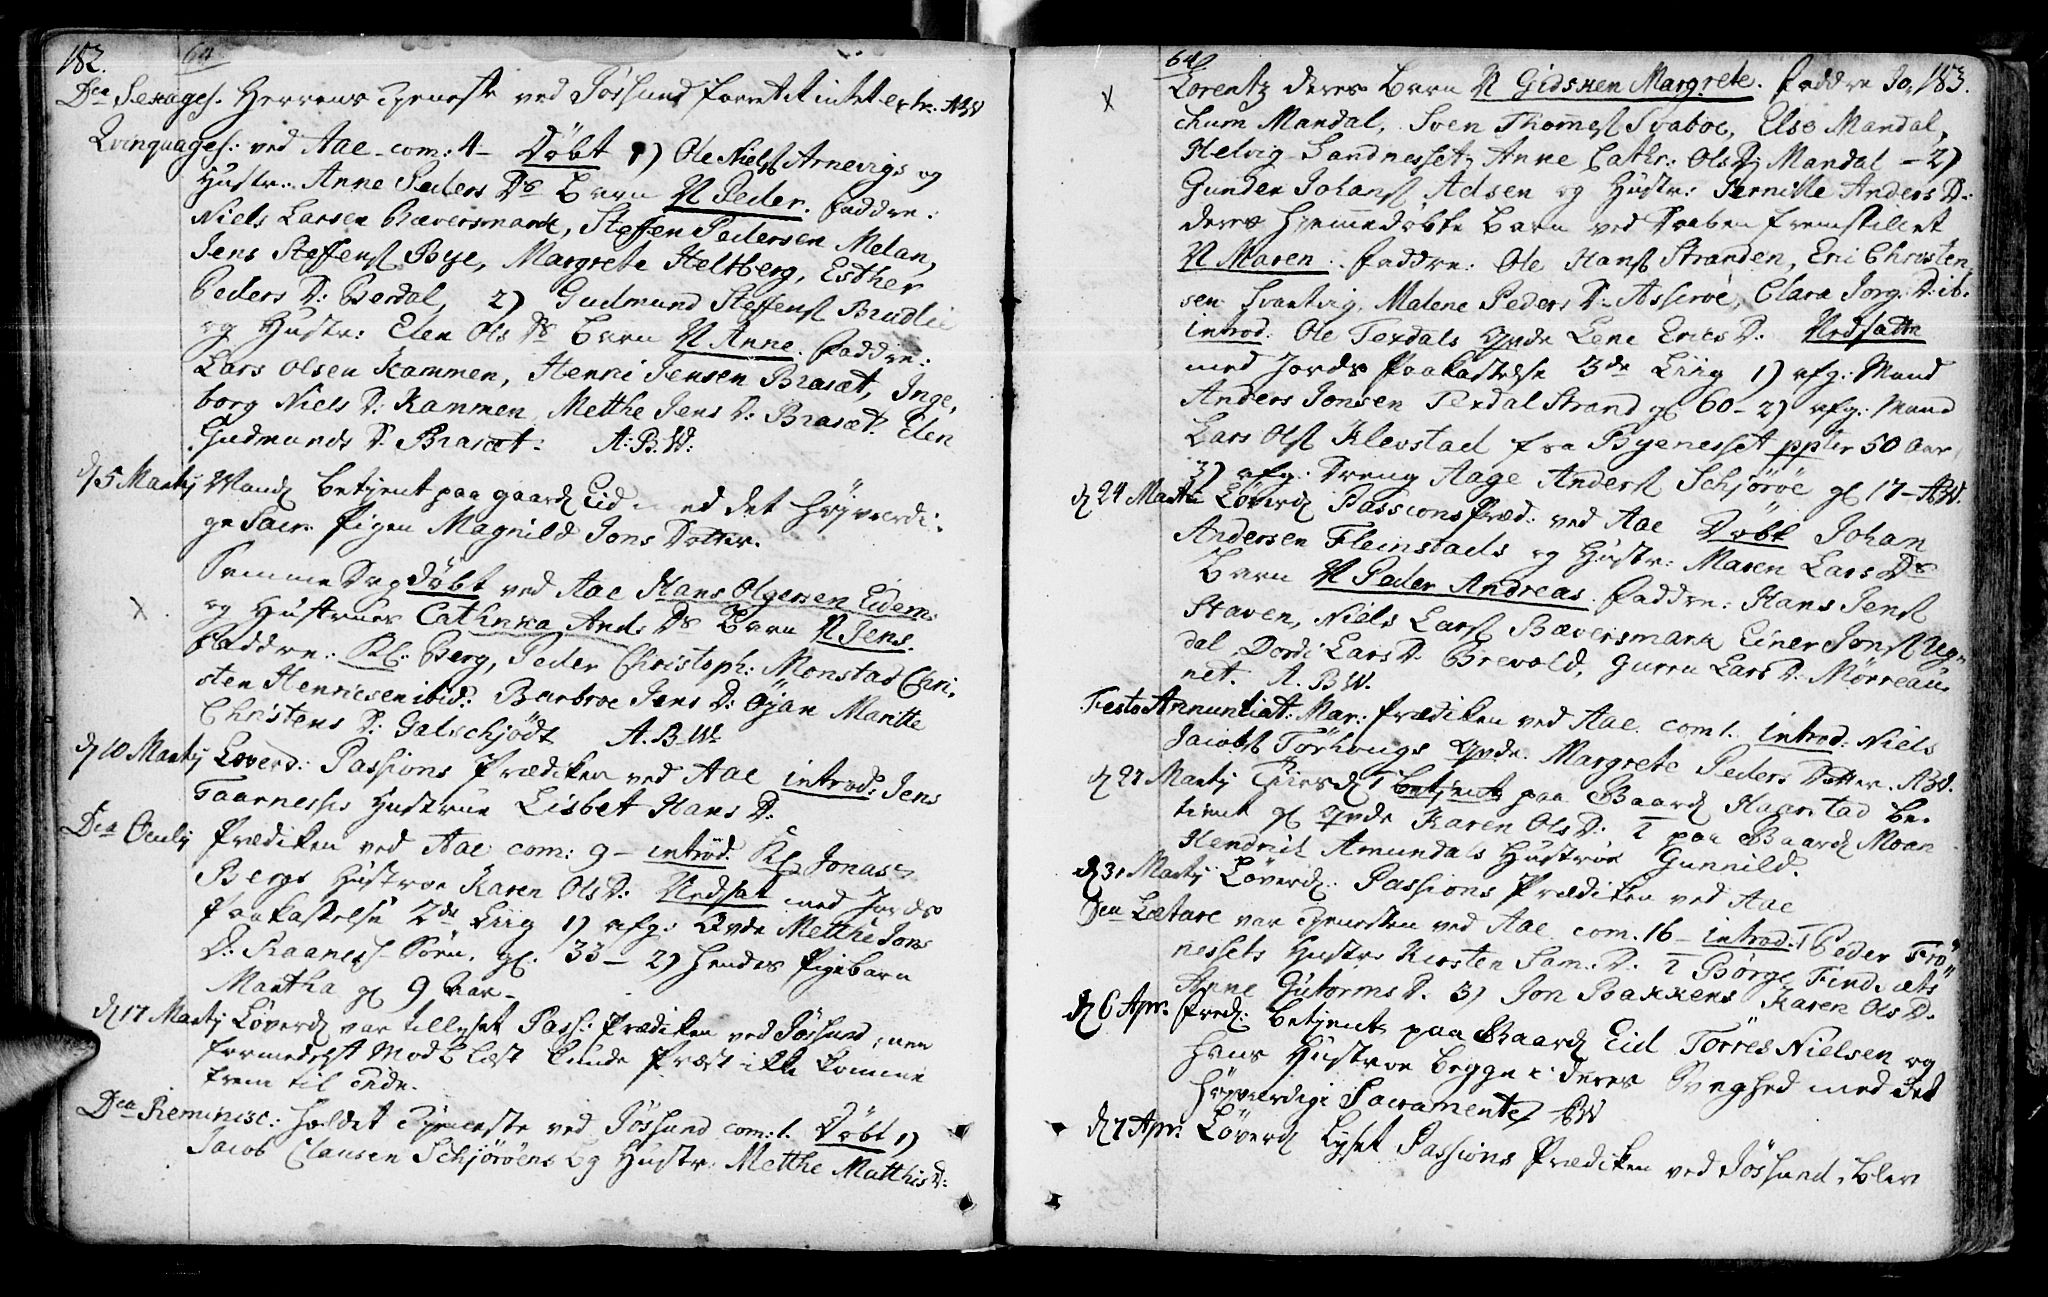 182. 64
Dca Sexages. Herrens Tieneste ved Jössund forrettet intet extr. ABW
Qvinquages: ved Aae com: 4 - Döbt 1) Ole Niels: Arnevigs og
Hustr: Anne Peders Ds Barn N Peder. Faddre:
Niels Larsen Bæversmark, Steffen Pedersen Melan,
Jens Steffens: Bye, Margrete Heltberg, Esther
Peders D: Berdal, 2) Gudmund Steffens: Bradlie
og Hustr: Elen Ols Ds Barn N Anne. Faddre:
Lars Olsen Kammen, Henni Jensen Brasæt, Inge,
borg Niels D: Kammen, Metthe Jens D: Brasæt. Elen
Gudmunds D: Brasæt: A: B. W:
d 5 Martij Mand: betjent paa gaard Eid med det Höjværdi-
ge Sacr. Pigen Magnild Jons Datter.
Samme Dag döbt ved Aae Hans Olgersen Eidem
X og Hustrues Cathrina And: Ds Barn N Jens.
Faddre: Kl: Berg, Peder Christoph: Monstad Chri,
sten Henricsen ibid: Barbroe Jens D: Öyan Maritte
Christens D: Galschjödt A. B. W.
d 10 Martij Löverd: Passions Prædiken ved Aae introd: Jens
Taarnesses Hustrue Lisbet Hans D.
Dca Oculi Prædiken ved Aae com: 9 - introd. Kl: Jonas
Bergs Hustroe Karen Ols D: Nedsat med Jords
Paakastelse 2de Liig 1) afg: Qvde Metthe Jons
D: Raaness: Sörn. gl: 33 - 2) hendes Pigebarn
Martha gl 9 Aar -
d 17 Martij Löverd var tillyset Pass: Prædiken ved Jössund, men
formedelst Modblæst kunde Præst ikke komme
frem til Tide.
Dca Reminisc: holdet Tieneste ved Jössund com: 1. Döbt 1)
Jacob Clausen Schjöröens og Hustr: Metthe Matthis D:
64 183.
X Lorentz deres Barn N Gidsken Margrete. Faddre Jo,
chum Mandal, Sven Thommes: Svaboe, Else Mandal,
Helvig Sandnesset, Anne Cathr: Ols D: Mandal - 2)
Gunder Johans: Adsen og Hustr: Pernille Anders D:
deres hjemmedöbte Barn ved Daaben fremstillet
N Maren. Faddre: Ole Hans: Stranden, Eric Christen
sen Svartvig, Malene Peders D: Asseröe, Clara Jorg: D: ib.
introd. Ole Texdals Qvde Lene Erics D: Nedsatte
med Jords Paakastelse 3de Liig 1) afg: Mand
Anders Jonsen Texdal Strand gl 60 - 2) afg: Mand
Lars Ols: Klevstad fra Byenesset ppter 50 Aar
3) afg: Dreng Aage Anders: Schjöröe gl 17 - ABW.
d 24 Martii Löverd Passions Præd: ved Aae Döbt Johan
Andersen Fleinstads og Hustr: Maren Lars Ds
Barn N Peder Andreas. Faddre: Hans Jens:
Staven, Niels Lars: Bæversmark Einer Jons: Ug,
dal, Dordi Lars D: Brevold, Gurru Lars D: Mörreau,
net. A. B. W.
Festo Annuntiat: Mar: Prædiken ved Aae com 1. introd: Niels
Jacobs: Törhougs Qvde Margrete Peders Datter. ABW.
d 27 Martij Tiirsd: 1 betjent paa Gaard Haarstad be-
tient gl Qvde Karen Ols D: 2 paa Gaard Moan
Hendrich Amundals Hustroe Gunnild.
d 31 Martij Löverd: Passions Prædiken ved Aae
Dca Lætare var Tienesten ved Aae com. 16 - introd: 1 Peder Frö
nessets Hustr: Kirsten Sam: D: 2 Börge Findsæts
Anne Gutorms D. 3) Jon Bakkens Karen Ols D.
d 6 Apr. Fred: betjent paa Gaard Eid Törres Nielsen og
hans Hustroe begge i deres Svaghed med det
Höjværdige Sacramente ABW
d 7 Apr: Löverd lyset Passions Prædiken ved Jössund, blev